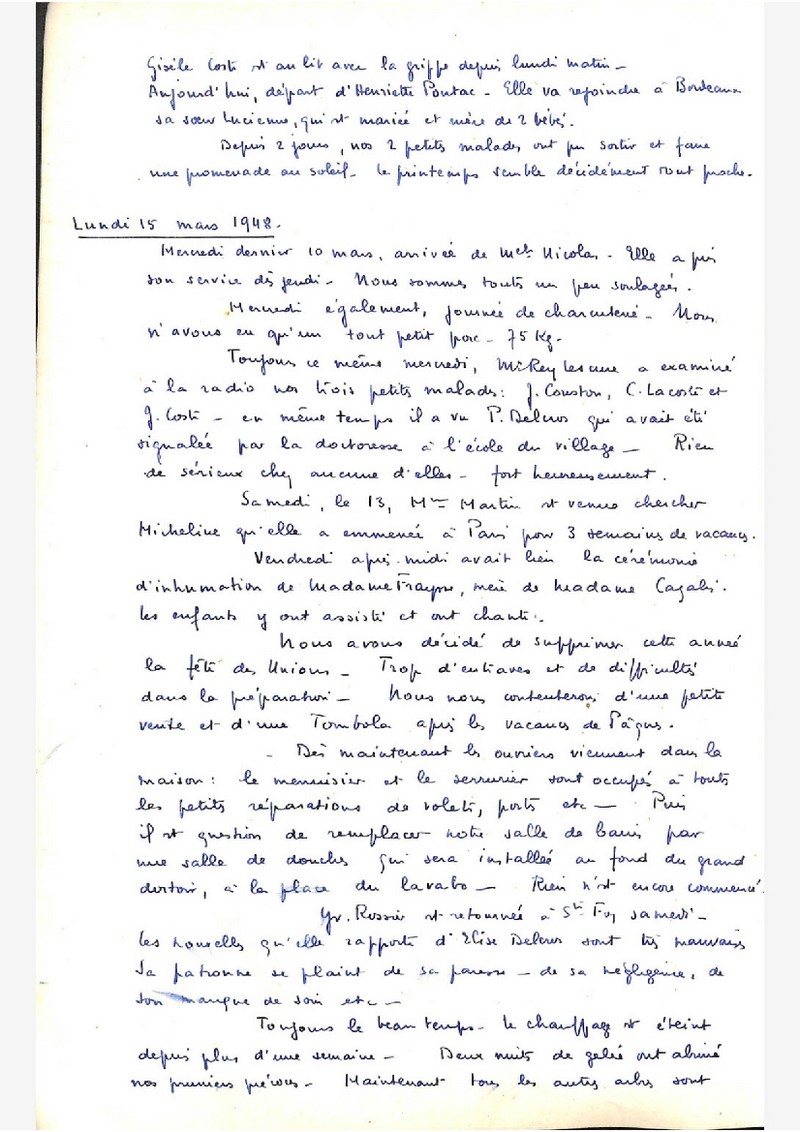 Gisèle Coste est au lit avec la grippe depuis lundi matin –
Aujourd'hui, départ d'Henriette Pontac – Elle va rejoindre à Bordeaux
sa sœur Lucienne, qui est mariée et mère de 2 bébés.
Depuis 2 jours, nos 2 petits malades ont pu sortir et faire
une promenade au soleil – le printemps semble décidément tout proche.
Lundi 15 mars 1948.
Mercredi dernier 10 mars, arrivée de Melle Nicolas – Elle a pris
son service dès jeudi – Nous sommes toutes un peu soulagées.
Mercredi également, journée de charcuterie – Nous
n'avons eu qu'un tout petit porc – 75 Kg –
Toujours ce même mercredi, Mr Rey a examiné
à la radio nos trois petits malades : J. Couston, C. Lacoste et
G. Coste – en même temps il a vu P. Delcros qui avait été
signalée par la doctoresse à l'école du village – Rien
de sérieux chez aucune d'elles – fort heureusement.
Samedi, le 13, Mme Martin est venue chercher
Micheline qu'elle a emmenée à Paris pour 3 semaines de vacances.
Vendredi après-midi avait lieu la cérémonie
d'inhumation de Madame Fraysse, mère de Madame Cazalis.
les enfants y ont assisté et ont chanté.
Nous avons décidé de supprimer cette année
la fête des Unions – Trop d'entraves et de difficultés
dans la préparation – Nous nous contenterons d'une petite
vente et d'une Tombola après les vacances de Pâques.
– Dès maintenant les ouvriers viennent dans la
maison : le menuisier et le serrurier sont occupés à toutes
les petites réparations de volets, portes etc – Puis
il est question de remplacer notre salle de bains par
une salle de douches qui sera installée au fond du grand
dortoir, à la place du lavabo – Rien n'est encore commencé.
Yv. Rossier est retournée à Ste Foy samedi –
les nouvelles qu'elle rapporte d'Elise Delcros sont très mauvaises
Sa patronne se plaint de sa paresse – de sa négligence, de
son manque de soin etc –
Toujours le beau temps – le chauffage est éteint
depuis plus d'une semaine – Deux nuits de gelée ont abîmé
nos pruniers précoces – Maintenant tous les autres arbres sont